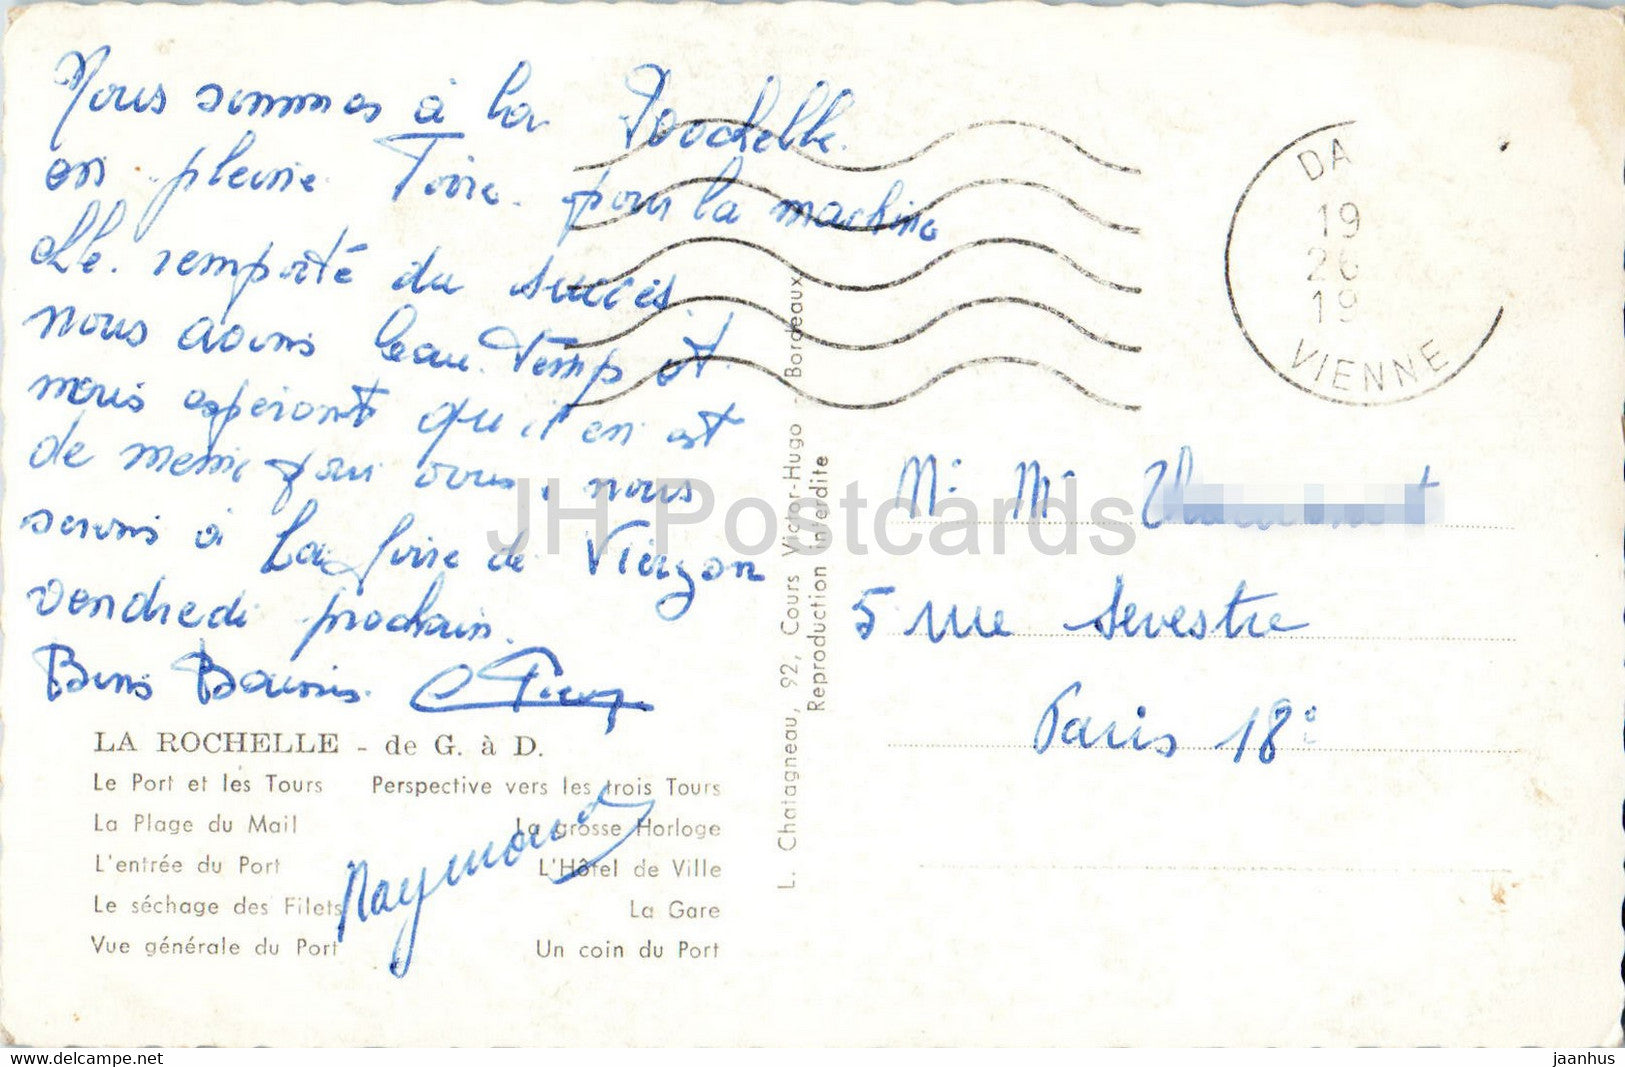 Nous sommes à la Roochelle.
en pleine Foire. pour la machine
elle. remporté du succès
nous avons beau temp et
nous esperons qu'il en est
de meme pour vous, nous
serons à La foire de Vierzon
vendredi prochain.
Bons Baisers.
Raymond
LA ROCHELLE - de G. à D.
Le Port et les Tours Perspective vers les trois Tours
La Plage du Mail La grosse Horloge
L'entrée du Port L'Hôtel de Ville
Le séchage des Filets La Gare
Vue générale du Port Un coin du Port
L. Chatagneau, 92, Cours Victor-Hugo - Bordeaux
Reproduction interdite
DA
19
26
19
VIENNE
Mr Me
5 rue Sevestre
Paris 18e
JH Postcards
www.delcampe.net
jaanhus